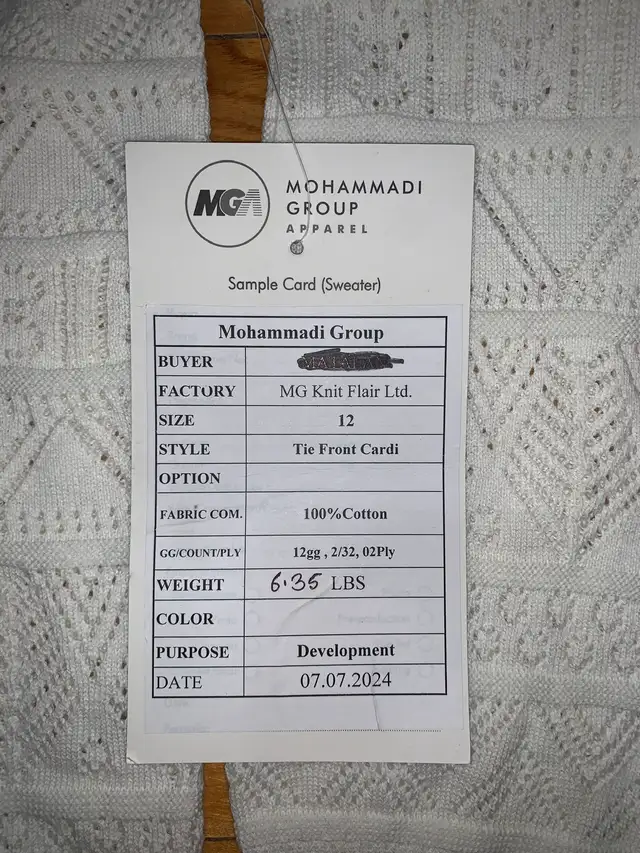 MGA
MOHAMMADI
GROUP
APPAREL
Sample Card (Sweater)
Mohammadi Group
BUYER
FACTORY MG Knit Flair Ltd.
SIZE 12
STYLE Tie Front Cardi
OPTION
FABRIC COM. 100%Cotton
GG/COUNT/PLY 12gg , 2/32, 02Ply
WEIGHT 6.35 LBS
COLOR
PURPOSE Development
DATE 07.07.2024